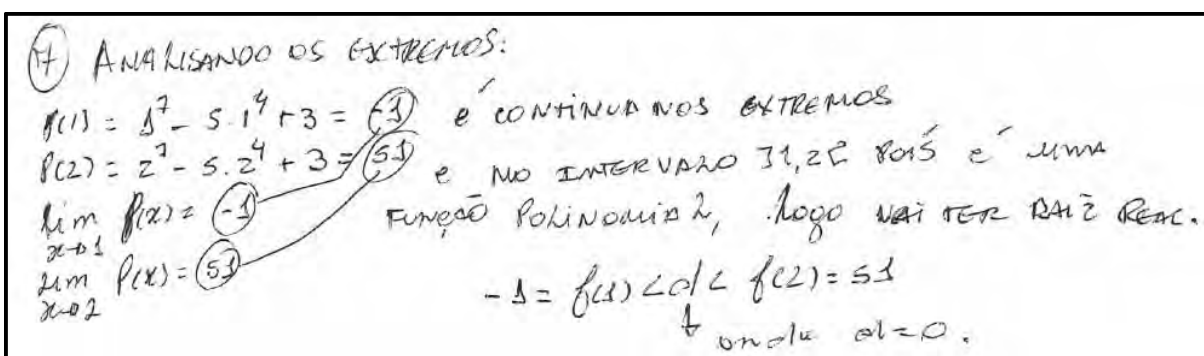 17) ANALISANDO OS EXTREMOS:
f(1) = 1^7 - 5.1^4 + 3 = -1 é CONTÍNUA NOS EXTREMOS
f(2) = 2^7 - 5.2^4 + 3 = 51 e NO INTERVALO ]1,2[ POIS é UMA
lim f(x) = -1 FUNÇÃO POLINOMIAL, logo VAI TER RAIZ REAL.
x→1
lim f(x) = 51
x→2
-1 = f(1) < d < f(2) = 51
onde d=0.